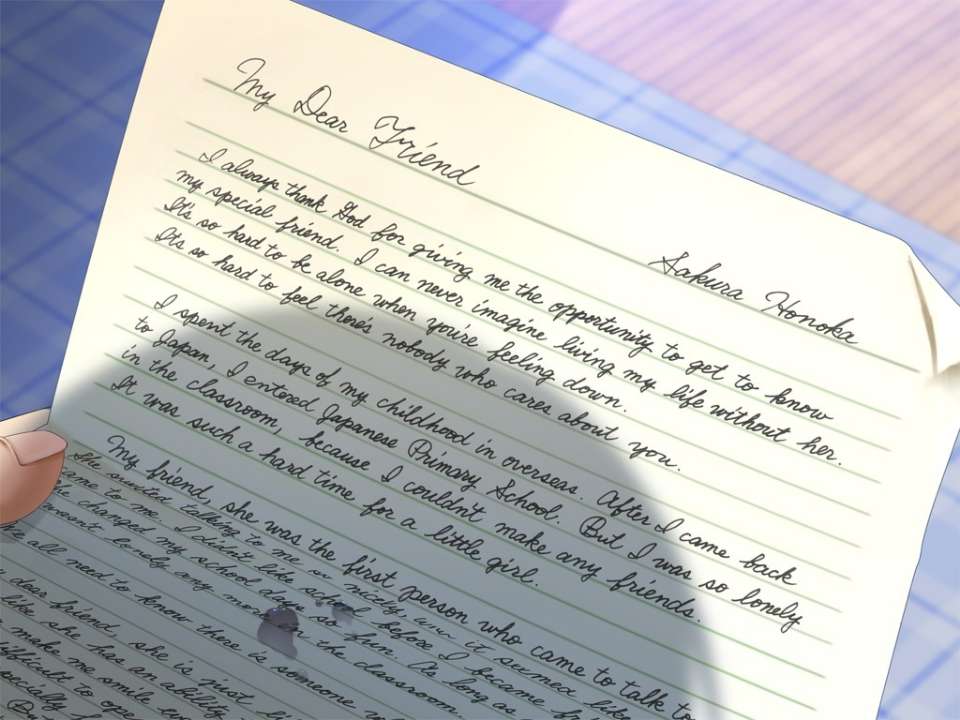 My Dear Friend
Sakura Honoka
I always thank God for giving me the opportunity to get to know
my special friend. I can never imagine living my life without her.
It's so hard to be alone when you're feeling down.
Its so hard to feel there's nobody who cares about you.
I spent the days of my childhood in overseas. After I came back
to Japan, I entered Japanese Primary School. But I was so lonely
in the classroom, because I couldn't make any friends.
It was such a hard time for a little girl.
My friend, she was the first person who came to talk to
She started talking to me so nicely and it seemed like
came to me. I didn't like school before I became
changed my school days so fun. As long as
lonely any more in the classroom.
We all need to know there is someone
dear friend, she is just
like she has an ability
make me smile
difficult to